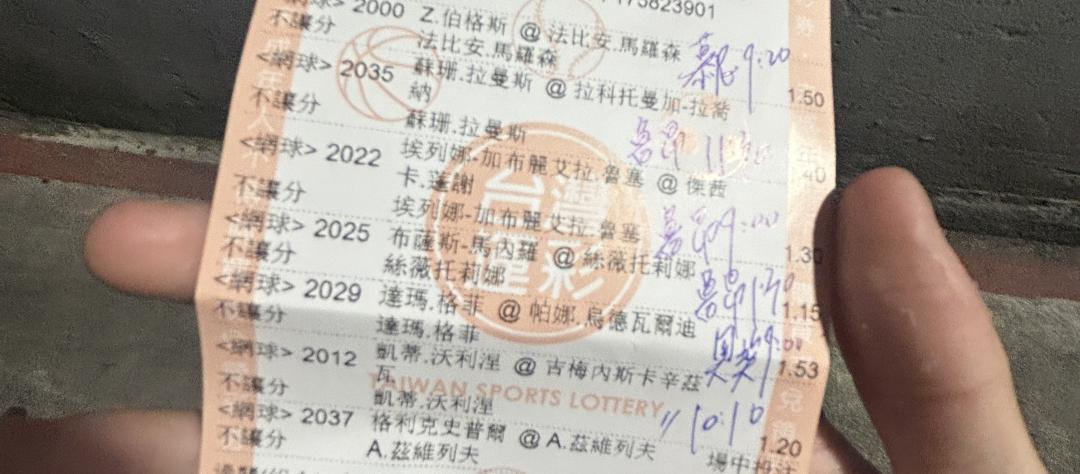 175823901
<網球> 2000 Z.伯格斯 @ 法比安.馬羅森
不讓分 法比安.馬羅森 9:20
1.50
<網球> 2035 蘇珊.拉曼斯 @ 拉科托曼加-拉喬
納
不讓分 蘇珊.拉曼斯
40
<網球> 2022 埃列娜-加布麗艾拉.魯塞 @ 傑茜
卡.蓬謝
不讓分 埃列娜-加布麗艾拉.魯塞 9:00
1.30
<網球> 2025 布薩斯-馬內羅 @ 絲薇托莉娜
不讓分 絲薇托莉娜
1.15
<網球> 2029 達瑪.格菲 @ 帕娜.烏德瓦爾迪
不讓分 達瑪.格菲
1.53
<網球> 2012 凱蒂.沃利涅 @ 吉梅內斯卡辛茲
瓦
不讓分 凱蒂.沃利涅 〃 10:10
1.20
<網球> 2037 格利克史普爾 @ A.茲維列夫
不讓分 A.茲維列夫 場中投注
台灣
運彩
TAIWAN SPORTS LOTTERY